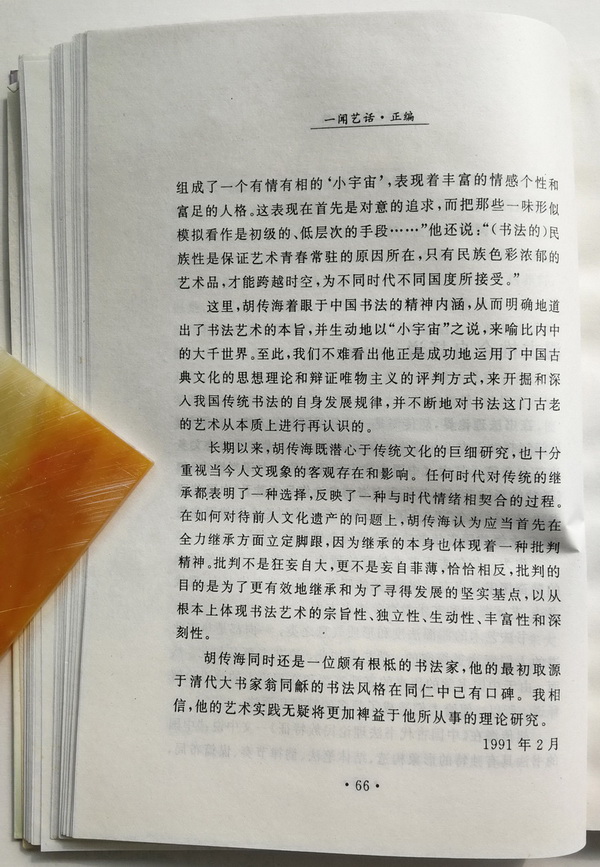 一闻艺话·正编
组成了一个有情有相的‘小宇宙’，表现着丰富的情感个性和
富足的人格。这表现在首先是对意的追求，而把那些一味形似
模拟看作是初级的、低层次的手段……”他还说：“（书法的）民
族性是保证艺术青春常驻的原因所在，只有民族色彩浓郁的
艺术品，才能跨越时空，为不同时代不同国度所接受。”
这里，胡传海着眼于中国书法的精神内涵，从而明确地道
出了书法艺术的本旨，并生动地以“小宇宙”之说，来喻比内中
的大千世界。至此，我们不难看出他正是成功地运用了中国古
典文化的思想理论和辩证唯物主义的评判方式，来开掘和深
入我国传统书法的自身发展规律，并不断地对书法这门古老
的艺术从本质上进行再认识的。
长期以来，胡传海既潜心于传统文化的巨细研究，也十分
重视当今人文现象的客观存在和影响。任何时代对传统的继
承都表明了一种选择，反映了一种与时代情绪相契合的过程。
在如何对待前人文化遗产的问题上，胡传海认为应当首先在
全力继承方面立定脚跟，因为继承的本身也体现着一种批判
精神。批判不是狂妄自大，更不是妄自菲薄，恰恰相反，批判的
目的是为了更有效地继承和为了寻得发展的坚实基点，以从
根本上体现书法艺术的宗旨性、独立性、生动性、丰富性和深
刻性。
胡传海同时还是一位颇有根柢的书法家，他的最初取源
于清代大书家翁同龢的书法风格在同仁中已有口碑。我相
信，他的艺术实践无疑将更加裨益于他所从事的理论研究。
1991年2月
·66·